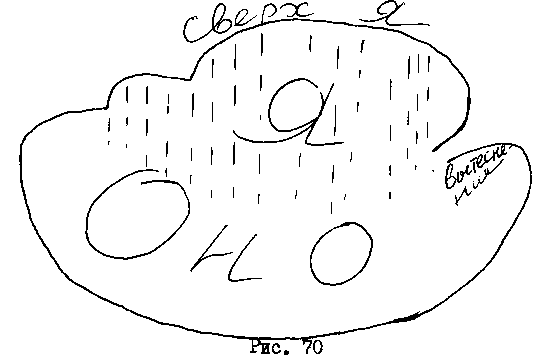 сверх я
Я
вытесне-
ния
О Н О
Рис. 70